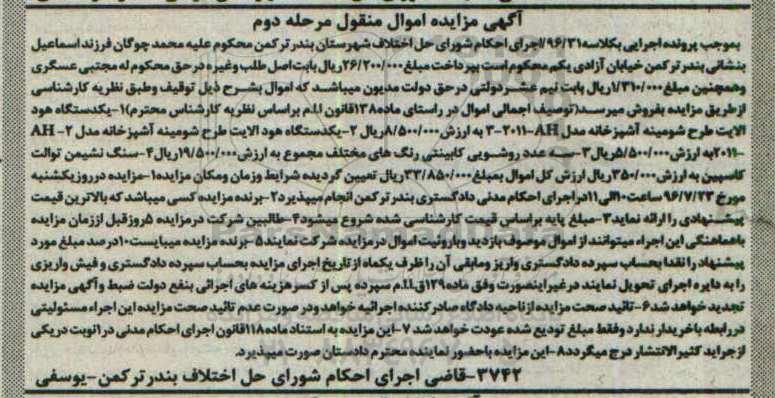 آگهی مزایده اموال منقول مرحله دوم
بموجب پرونده اجرایی بکلاسه۹۶/۳۱/اجرای احکام شورای حل اختلاف شهرستان بندرترکمن محکوم علیه محمد چوگان فرزند اسماعیل
بنشانی بندرترکمن خیابان آزادی یکم محکوم است بپرداخت مبلغ۲۶/۲۰۰/۰۰۰ریال بابت اصل طلب وغیره درحق محکوم له مجتبی عسگری
وهمچنین مبلغ۱/۳۱۰/۰۰۰ریال بابت نیم عشردولتی درحق دولت مدیون میباشد که اموال بشرح ذیل توقیف وطبق نظریه کارشناسی
ازطریق مزایده بفروش میرسد(توصیف اجمالی اموال در راستای ماده۱۳۸قانون ا.ا.م براساس نظریه کارشناس محترم)۱-یکدستگاه هود
الایت طرح شومینه آشپزخانه مدل ۳-۲۰۱۱-AH به ارزش۸/۵۰۰/۰۰۰ریال ۲-یکدستگاه هود الایت طرح شومینه آشپزخانه مدل ۲- AH
-۲۰۱۱به ارزش۵/۵۰۰/۰۰۰ریال۳-سه عدد روشویی کابینتی رنگ های مختلف مجموع به ارزش۱۹/۵۰۰/۰۰۰ریال۴-سنگ نشیمن توالت
کاسپین به ارزش۳۵۰/۰۰۰ریال ارزش کل اموال بمبلغ۳۳/۸۵۰/۰۰۰ریال تعیین گردیده شرایط وزمان ومکان مزایده۱-مزایده درروزیکشنبه
مورخ۹۶/۷/۲۳ ساعت۱۰الی۱۱دراجرای احکام مدنی دادگستری بندرترکمن انجام میپذیرد۲-برنده مزایده کسی میباشد که بالاترین قیمت
پیشنهادی را ارائه نماید۳-مبلغ پایه براساس قیمت کارشناسی شده شروع میشود۴-طالبین شرکت درمزایده ۵روزقبل اززمان مزایده
باهماهنگی این اجراء میتوانند از اموال موصوف بازدید وباروئیت اموال درمزایده شرکت نمایند۵-برنده مزایده میبایست۱۰درصد مبلغ مورد
پیشنهاد را نقدا بحساب سپرده دادگستری واریز ومابقی آن را ظرف یکماه ازتاریخ اجرای مزایده بحساب سپرده دادگستری و فیش واریزی
را به دایره اجرای تحویل نمایند درغیراینصورت وفق ماده۱۲۹ق.ا.ا.م سپرده پس از کسرهزینه های اجرائی بنفع دولت ضبط وآگهی مزایده
تجدید خواهد شد۶-تائید صحت مزایده ازناحیه دادگاه صادرکننده اجرائیه خواهد ودر صورت عدم تائید صحت مزایده این اجراء مسئولیتی
دررابطه باخریدارندارد وفقط مبلغ تودیع شده عودت خواهد شد ۷-این مزایده به استناد ماده۱۱۸قانون اجرای احکام مدنی در۱نوبت دریکی
ازجراید کثیرالانتشار درج میگردد۸-این مزایده باحضور نماینده محترم دادستان صورت میپذیرد.
۳۷۴۲-قاضی اجرای احکام شورای حل اختلاف بندرترکمن-یوسفی
ParsNamadData